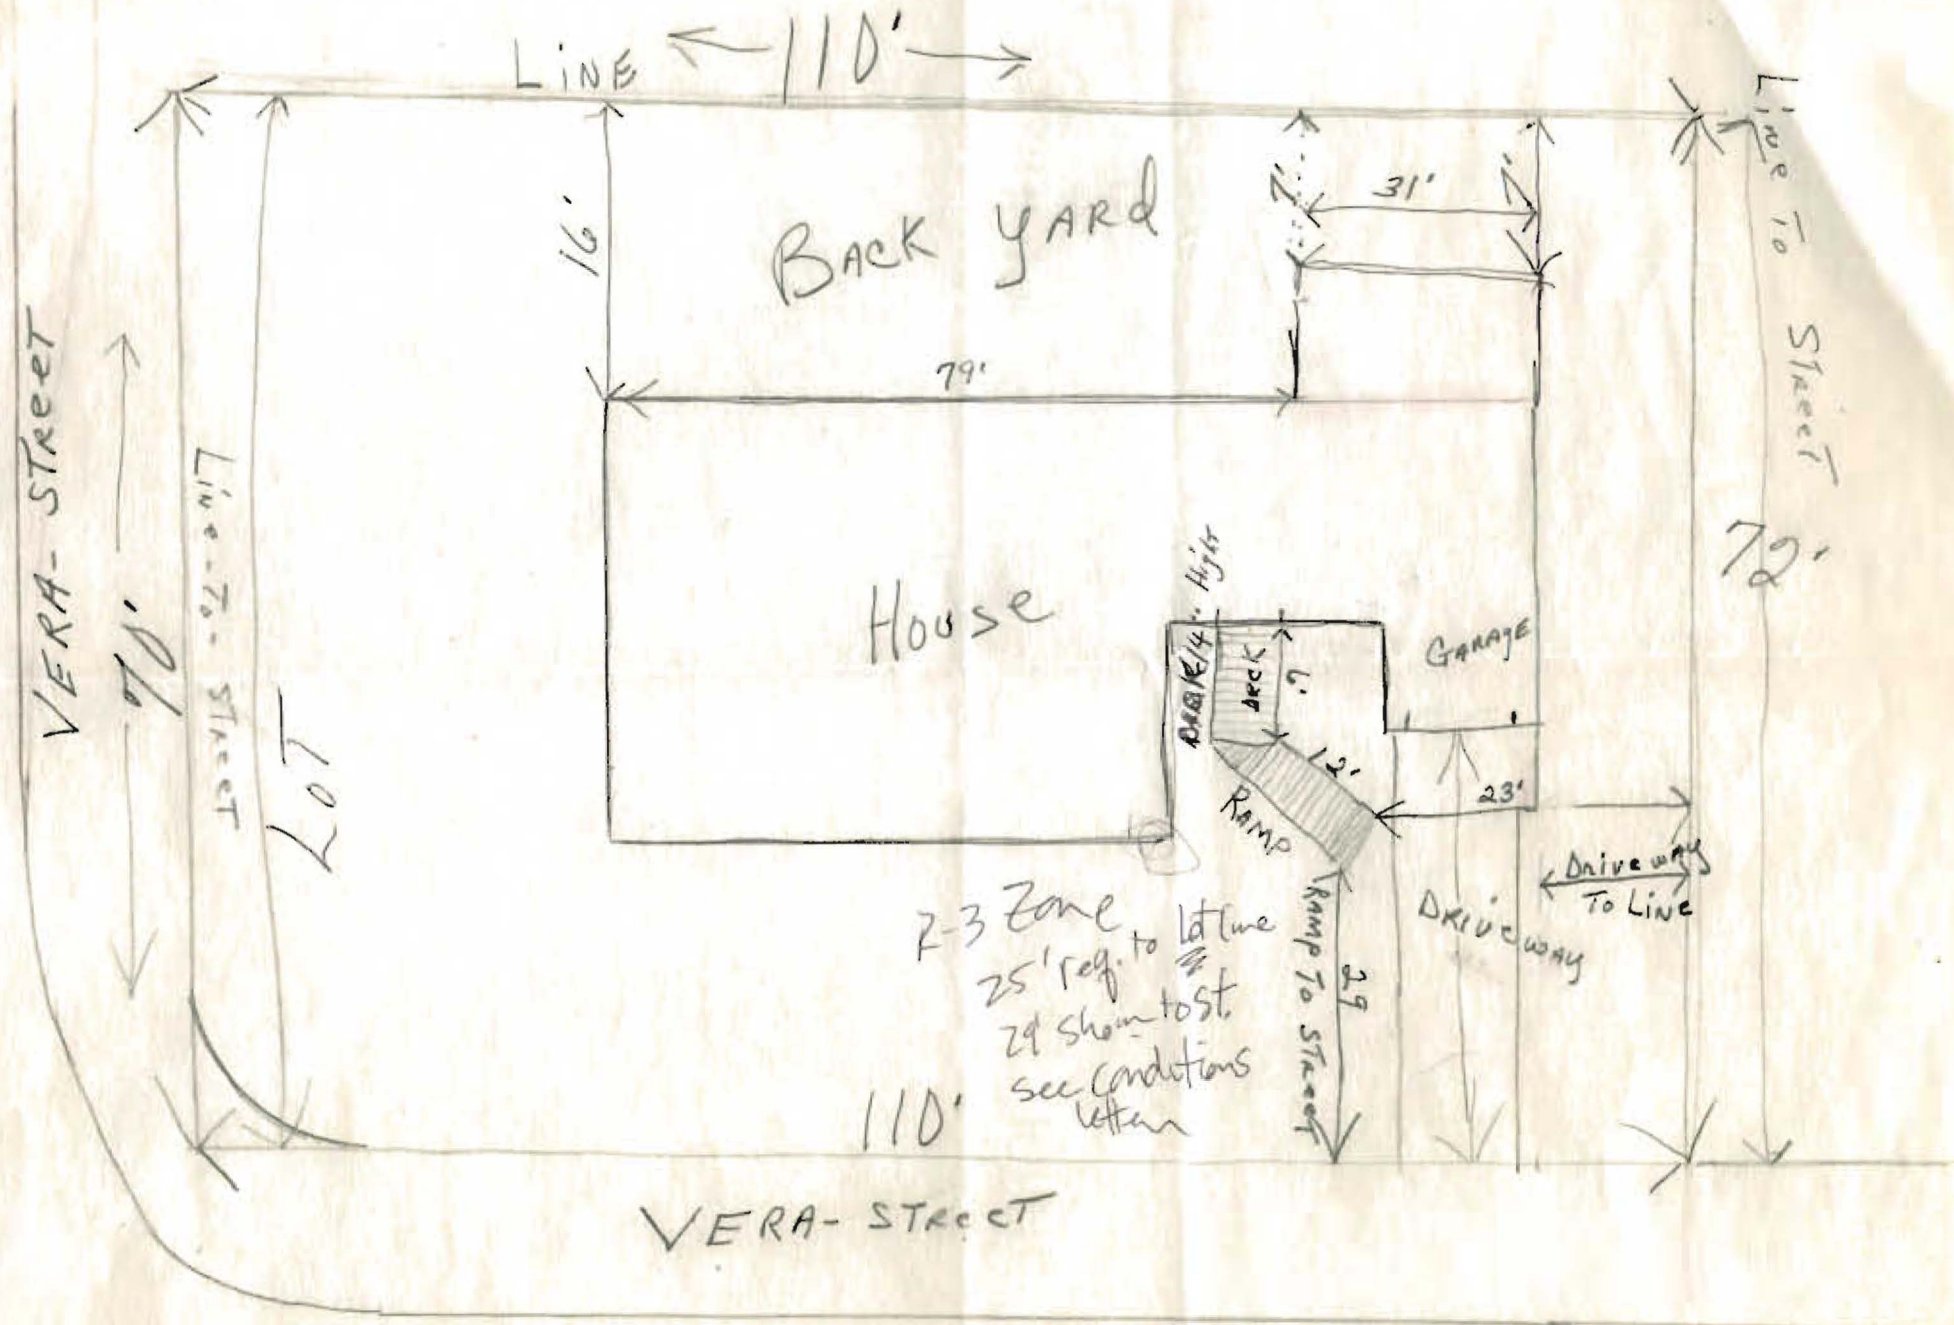 LiNE 110'
Line To Street
7' 31' 7'
16'
BACK YARD
79'
VERA-STReeT
70'
Line-To-STreeT
LOT
72'
House
14" High
Deck
6'
GARAGE
12'
RAMP
23'
Driveway
To LiNE
DRIVeWAY
RAMP To STReeT
29
R-3 Zone
25' req. to lot line
29' shown to St.
see conditions
letter
110'
VERA-STReeT